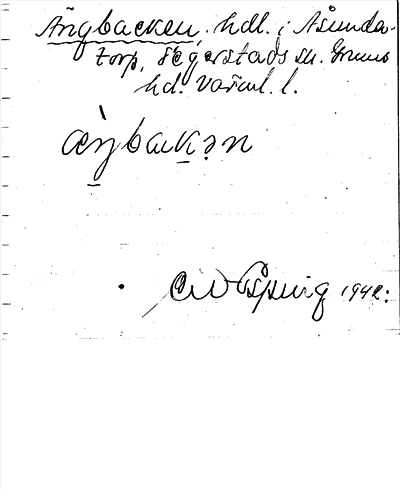 Ängbacken, hdl. i Åsunda-
torp, Segerstads sn. Grums
hd. Värml. l.
æŋbakən
1942.